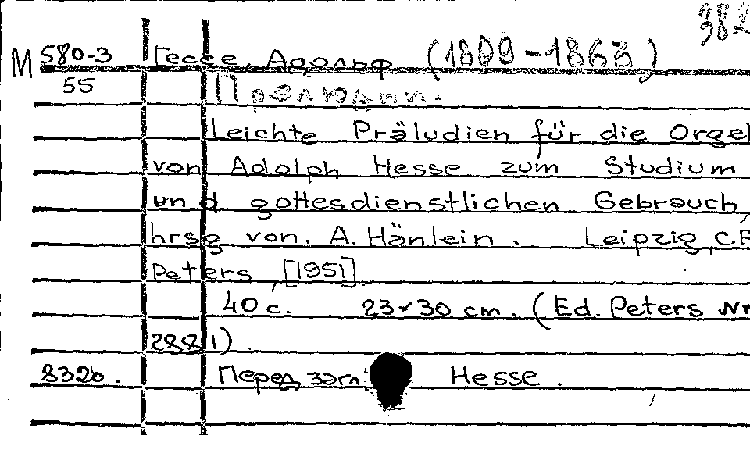 382
М 580-3 Гессе, Адольф (1809-1863)
55 Прелюдии.
Leichte Präludien für die Orgel
von Adolph Hesse zum Studium
und gottesdienstlichen Gebrauch,
hrsg von. A. Hänlein. Leipzig, C.F
Peters, [1951]
40 с. 23×30 cm. (Ed. Peters Nr
2881).
8320. Перед загл. Hesse.